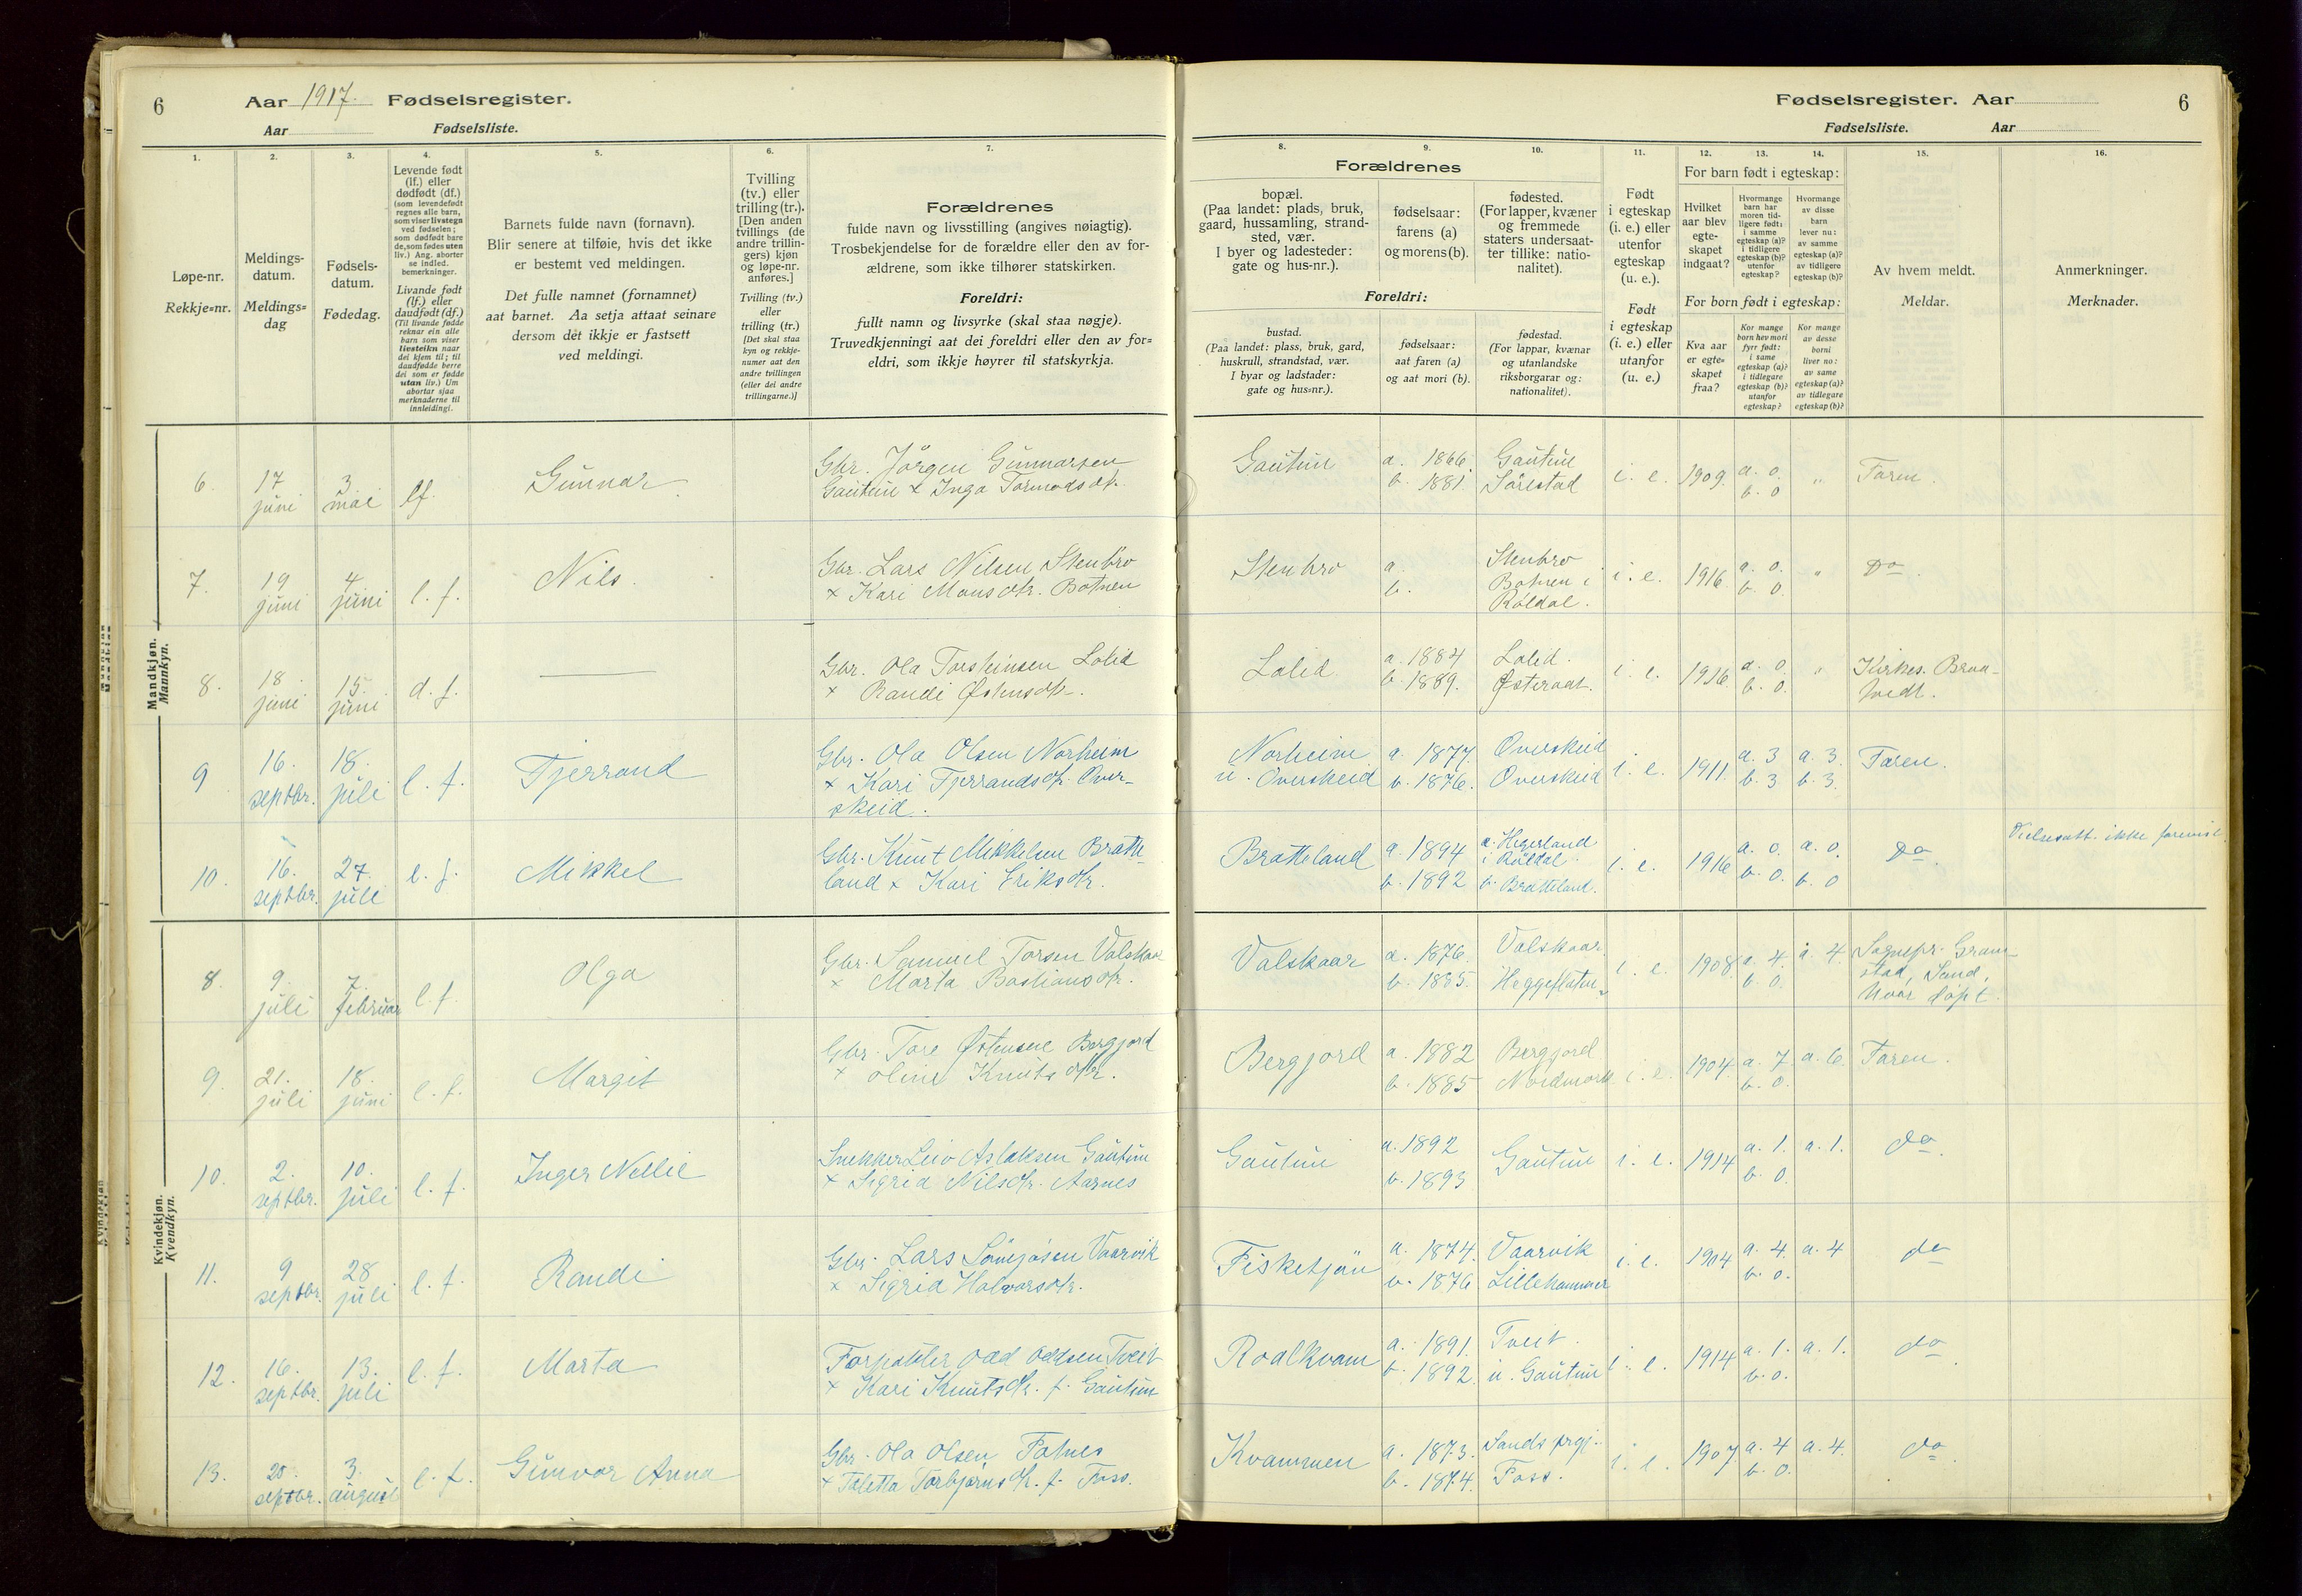 6
Aar 1917. Fødselsregister.
Aar Fødselsliste.
Fødselsregister. Aar
6
Fødselsliste. Aar
1.
2.
3.
4.
5.
6.
7.
8.
9.
10.
11.
12.
13.
14.
15.
16.
Løpe-nr.
Rekkje=nr.
Meldings-
datum.
Meldings=
dag
Fødsels-
datum.
Fødedag.
Levende født
(lf.) eller
dødfødt (df.)
(som levendefødt
regnes alle barn,
som viser livstegn
ved fødselen;
som dødfødt bare
de, som fødes uten
liv.) Ang. aborter
se indled.
bemerkninger.
Livande født
(lf.) eller
daudfødt (df.)
(Til livande fødde
reknar ein alle
barn som viser
livsteikn naar
dei kjem til; til
daudfødde berre
dei som er fødde
utan liv.) Um
abortar sjaa
merknaderne til
innleidingi.
Barnets fulde navn (fornavn).
Blir senere at tilføie, hvis det ikke
er bestemt ved meldingen.
Det fulle namnet (fornamnet)
aat barnet. Aa setja attaat seinare
dersom dèt ikkje er fastsett
ved meldingi.
Tvilling
(tv.) eller
trilling (tr.).
[Den anden
tvillings (de
andre trillin-
gers) kjøn
og løpe-nr.
anføres.]
Tvilling (tv.)
eller
trilling (tr.)
[Det skal staa
kyn og rekkje-
numer aat den
andre tvillingen
(eller dei andre
trillingarne.)]
Forældrenes
fulde navn og livsstilling (angives nøiagtig).
Trosbekjendelse for de forældre eller den av for-
ældrene, som ikke tilhører statskirken.
Foreldri:
fullt namn og livsyrke (skal staa nøgje).
Truvedkjenningi aat dei foreldri eller den av for=
eldri, som ikkje høyrer til statskyrkja.
Forældrenes
bopæl.
(Paa landet: plads, bruk,
gaard, hussamling, strand-
sted, vær.
I byer og ladesteder:
gate og hus-nr.).
fødselsaar:
farens (a)
og morens (b).
fødested.
(For lapper, kvæner
og fremmede
staters undersaat-
ter tillike: natio-
nalitet).
Foreldri:
bustad.
(Paa landet: plass, bruk, gard,
huskrull, strandstad, vær.
I byar og ladstader:
gate og hus=nr.).
fødselsaar:
aat faren (a)
og aat mori (b).
fødestad.
(For lappar, kvænar
og utanlandske
riksborgarar og:
nationalitet).
Født
i egteskap
(i. e.) eller
utenfor
egteskap
(u. e.).
Født
i egteskap
(i. e.) eller
utanfor
(u. e.)
For barn født i egteskap:
Hvilket
aar blev
egte-
skapet
indgaat?
Hvormange
barn har
moren tid-
ligere født:
i samme
egteskap (a)?
i tidligere
egteskap (b)?
utenfor
egteskap?
Hvormange
av disse
barn
lever nu:
av samme
egteskap (a)?
av tidligere
egteskap (b)?
For born født i egteskap:
Kva aar
er egte=
skapet
fraa?
Kor mange
born hev mori
fyrr født:
i same
egteskap (a)?
i tidlegare
egteskap (b)?
utanfor
egteskap?
Kor mange
av desse
borni
liver no:
av same
egteskap (a)?
av tidlegare
egteskap (b)?
Av hvem meldt.
Meldar.
Anmerkninger.
Merknader.
Mandkjøn.
Mannkyn.
6. 17 juni 3 mai lf. Gunnar Gbr. Jørgen Gunnarsen
Gautun x Inga Tormodsdtr. Gautun a. 1866. b. 1881. Gautun Sørestad i. e. 1909. a. 0. b. 0 " Faren.
7. 19 juni 4 juni l. f. Nils. Gbr. Lars Nilsen Stenbro
x Kari Monsdtr. Botnen Stenbro a. b. Stenbro Botnen i Røldal. i. e. 1916. a. 0. b. 0. " Do.
8. 18 juni 15. juni d. f. — Gbr. Ola Torsteinsen Lolid
x Randi Østensdtr. Lolid. a. 1884 b. 1889. Lolid. i. e. 1916. a. 0. b. 0. " Kirkes. Braa-
tvedt.
9 16. septbr. 18. juli l. f. Tjerrand Gbr. Ola Olsen Norheim
x Kari Tjerrandsdtr. Over-
skeid. Norheim u. Overskeid a. 1877. b. 1876. Overskeid Overskeid i. e. 1911. a. 3 b. 3 a. 3. b. 3. Faren.
10. 16. septbr. 27. juli l. f. Mikkel Gbr. Knut Mikkelsen Bratte
land x Kari Eriksdtr. Bratteland a. 1894 b. 1892 a. Hegerland i Røldal. b. Bratteland. i. e. 1916 a. 0. b. 0. a. 0. b. 0 Do. Vielsesatt. ikke forevist.
Kvindekjøn.
Kvendkyn.
8. 9. juli 7. februar l. f. Olga Gbr. Samuel Torsen Valskaar
x Marta Bastiansdtr. Valskaar a. 1876. b. 1885. Valskaar. Heggeflaten i. e. 1908. a. 4. b. 0. a. 4. Sognepr. Gram-
stad, Sand,
hvor døpt.
9. 21. juli 18. juni l. f. Margit Gbr. Tore Østensen Bergjord
x Oline Knutsdtr. Bergjord a. 1882 b. 1885 Bergjord Nordmork i. e. 1904. a. 7. b. 0. a. 6. Faren.
10. 2. septbr. 10. juli l. f. Inger Nellie Snekker Leiv Aslaksen Gautun
x Sigrid Nilsdtr. Aarnes Gautun a. 1892 b. 1893 Gautun i. e. 1914 a. 1. b. 0. a. 1. do.
11. 9 septbr. 28 juli l. f. Randi Gbr. Lars Vaarvik
x Sigrid Halvorsdtr. Fisketjøn a. 1874. b. 1876 Vaarvik Lillehammer i. e. 1904 a. 4. b. 0. a. 4 do
12. 16. septbr. 13. juli l. f. Marta Forpakter Odd Oddsen Tveit
x Kari Knutsdtr. f. Gautun Roalkvam a. 1891. b. 1892. Tveit. u. Gautun i. e. 1914 a. 1. b. 0. a. 1. do.
13. 20. septbr. 3. august l. f. Gunvor Anna Gbr. Ola Olsen Fatnes
x Taletta Torbjørnsdtr. f. Foss. Kvammen a. 1873. b. 1874. Sands prgj. Foss. i. e. 1907. a. 4 b. 0. a. 4. do.